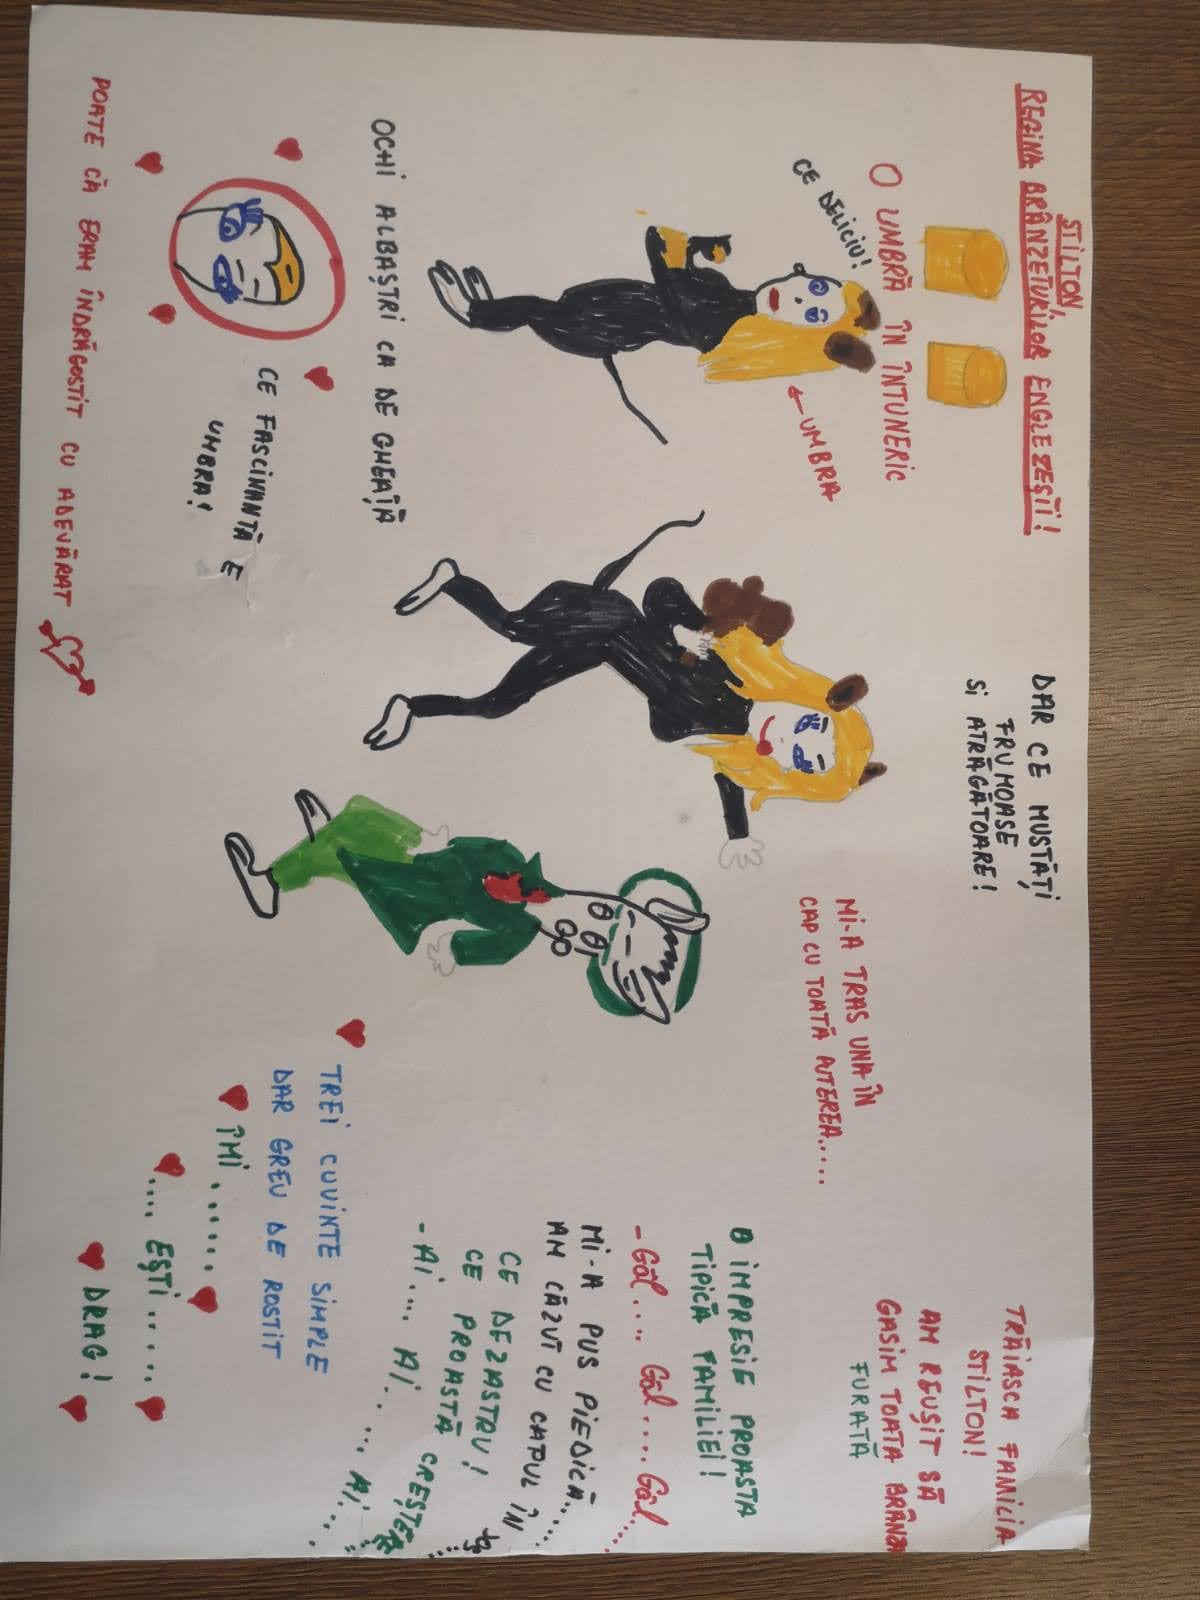 STILTON,
REGINA BRÂNZETURILOR ENGLEZEȘTI!
O UMBRĂ ÎN ÎNTUNERIC
CE DELICIU!
←UMBRA
OCHI ALBAȘTRI CA DE GHEAȚĂ
CE FASCINANTĂ E
UMBRA!
POATE CĂ ERAM ÎNDRĂGOSTIT CU ADEVĂRAT
DAR CE MUSTĂȚI
FRUMOASE
SI ATRĂGĂTOARE!
MI-A TRAS UNA ÎN
CAP CU TOATĂ PUTEREA....
TRĂIASCA FAMILIA
STILTON!
AM REUȘIT SĂ
GASIM TOATA BRÂNZA
FURATĂ
O IMPRESIE PROASTA
TIPICĂ FAMILIEI!
-Gâl.... Gâl.... Gâl....
MI-A PUS PIEDICĂ.....
AM CĂZUT CU CAPUL ÎN
CE DEZASTRU!
CE PROASTĂ CREȘTERE
-AI.... AI..... AI...
TREI CUVINTE SIMPLE
DAR GREU DE ROSTIT
ÎMI ......
.... EȘTI .....
DRAG!